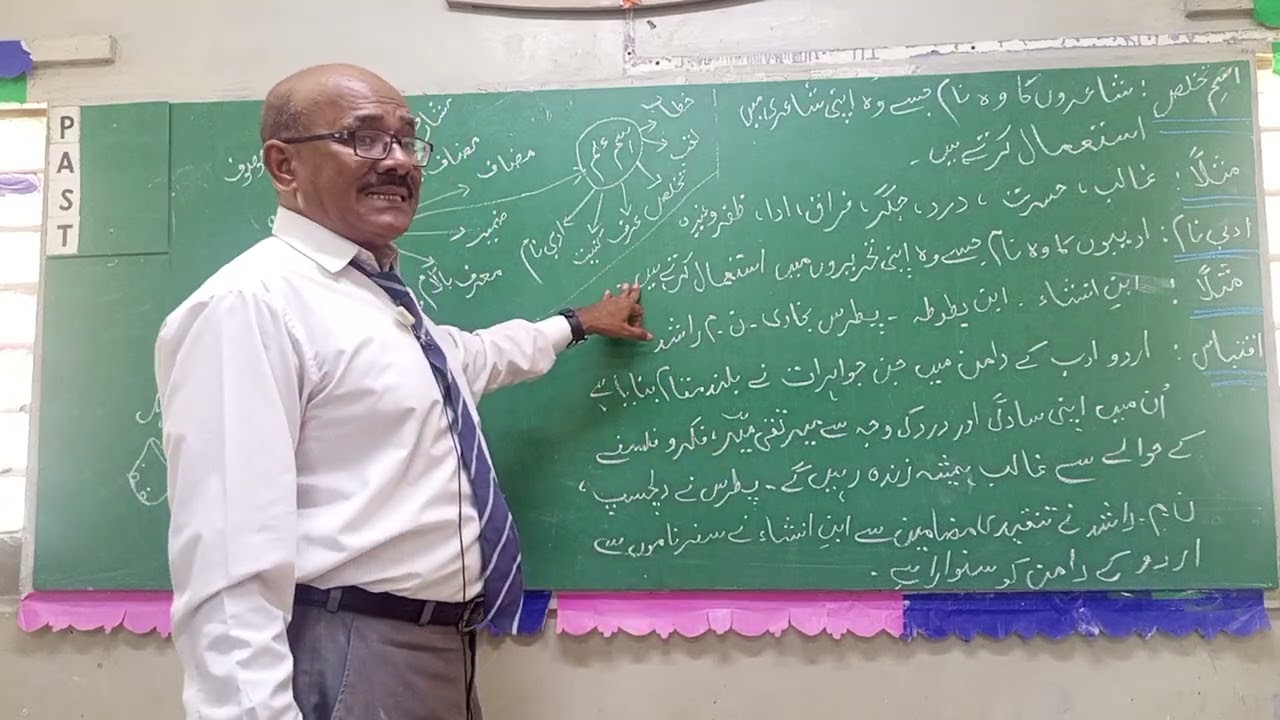 اسمِ تخلص : شاعروں کا وہ نام جسے وہ اپنی شاعری میں
استعمال کرتے ہیں ۔
مثلاً : غالب ، حسرت ، درد ، جگر ، فراق ، ادا ، ظفر وغیرہ
ادبی نام : ادیبوں کا وہ نام جسے وہ اپنی تحریروں میں استعمال کرتے ہیں
مثلاً : ابنِ انشاء ۔ ابن بطوطہ ۔ پطرس بخاری ۔ ن م راشد
اقتباس : اردو ادب کے دامن میں جن جواہرات نے بلند مقام بنایا ہے
اُن میں اپنی سادگی اور درد کی وجہ سے میر تقی میر ، فکر و فلسفے
کے حوالے سے غالب ہمیشہ زندہ رہیں گے ۔ پطرس نے دلچسپ ،
ن م ۔ راشد نے تنقیدی مضامین سے ابنِ انشاء نے سفرناموں سے
اردو کے دامن کو سنوارا ہے ۔
اسم علم
خطاب
لقب
تخلص
عرف
کنیت
ادبی نام
مضاف
ضمیر
معرف بالام
PAST